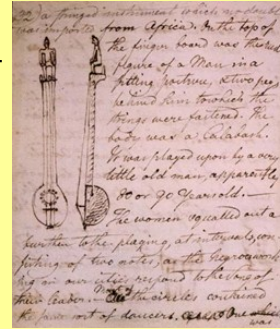 a stringed instrument which no doubt
was imported from Africa. On the top of
the finger board was the rude
figure of a Man in a
sitting posture, & two pegs
behind him to which the
strings were fastened. The
body was a Calabash.
It was played upon by a very
little old man, apparently
80 or 90 Years old.
The women squalled out a
burthen to the playing, at intervals, con-
sisting of two notes, as the Negroes work-
ing in our cities respond to the song of
their leader. the circles contained
the same sort of dancers. One
was